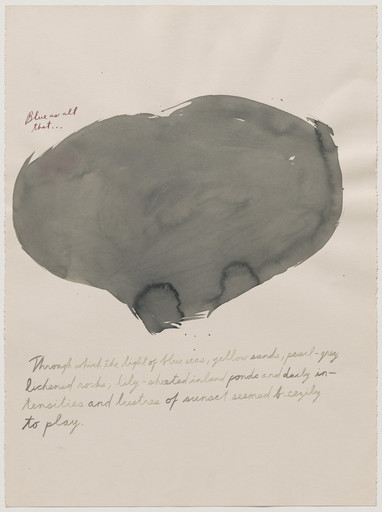 Blue as all
that...
Through which the light of blue seas, yellow sands, pearl-grey
lichened rocks, lily-sheeted inland ponds and daily in-
tensities and lustres of sunset seemed
to play.